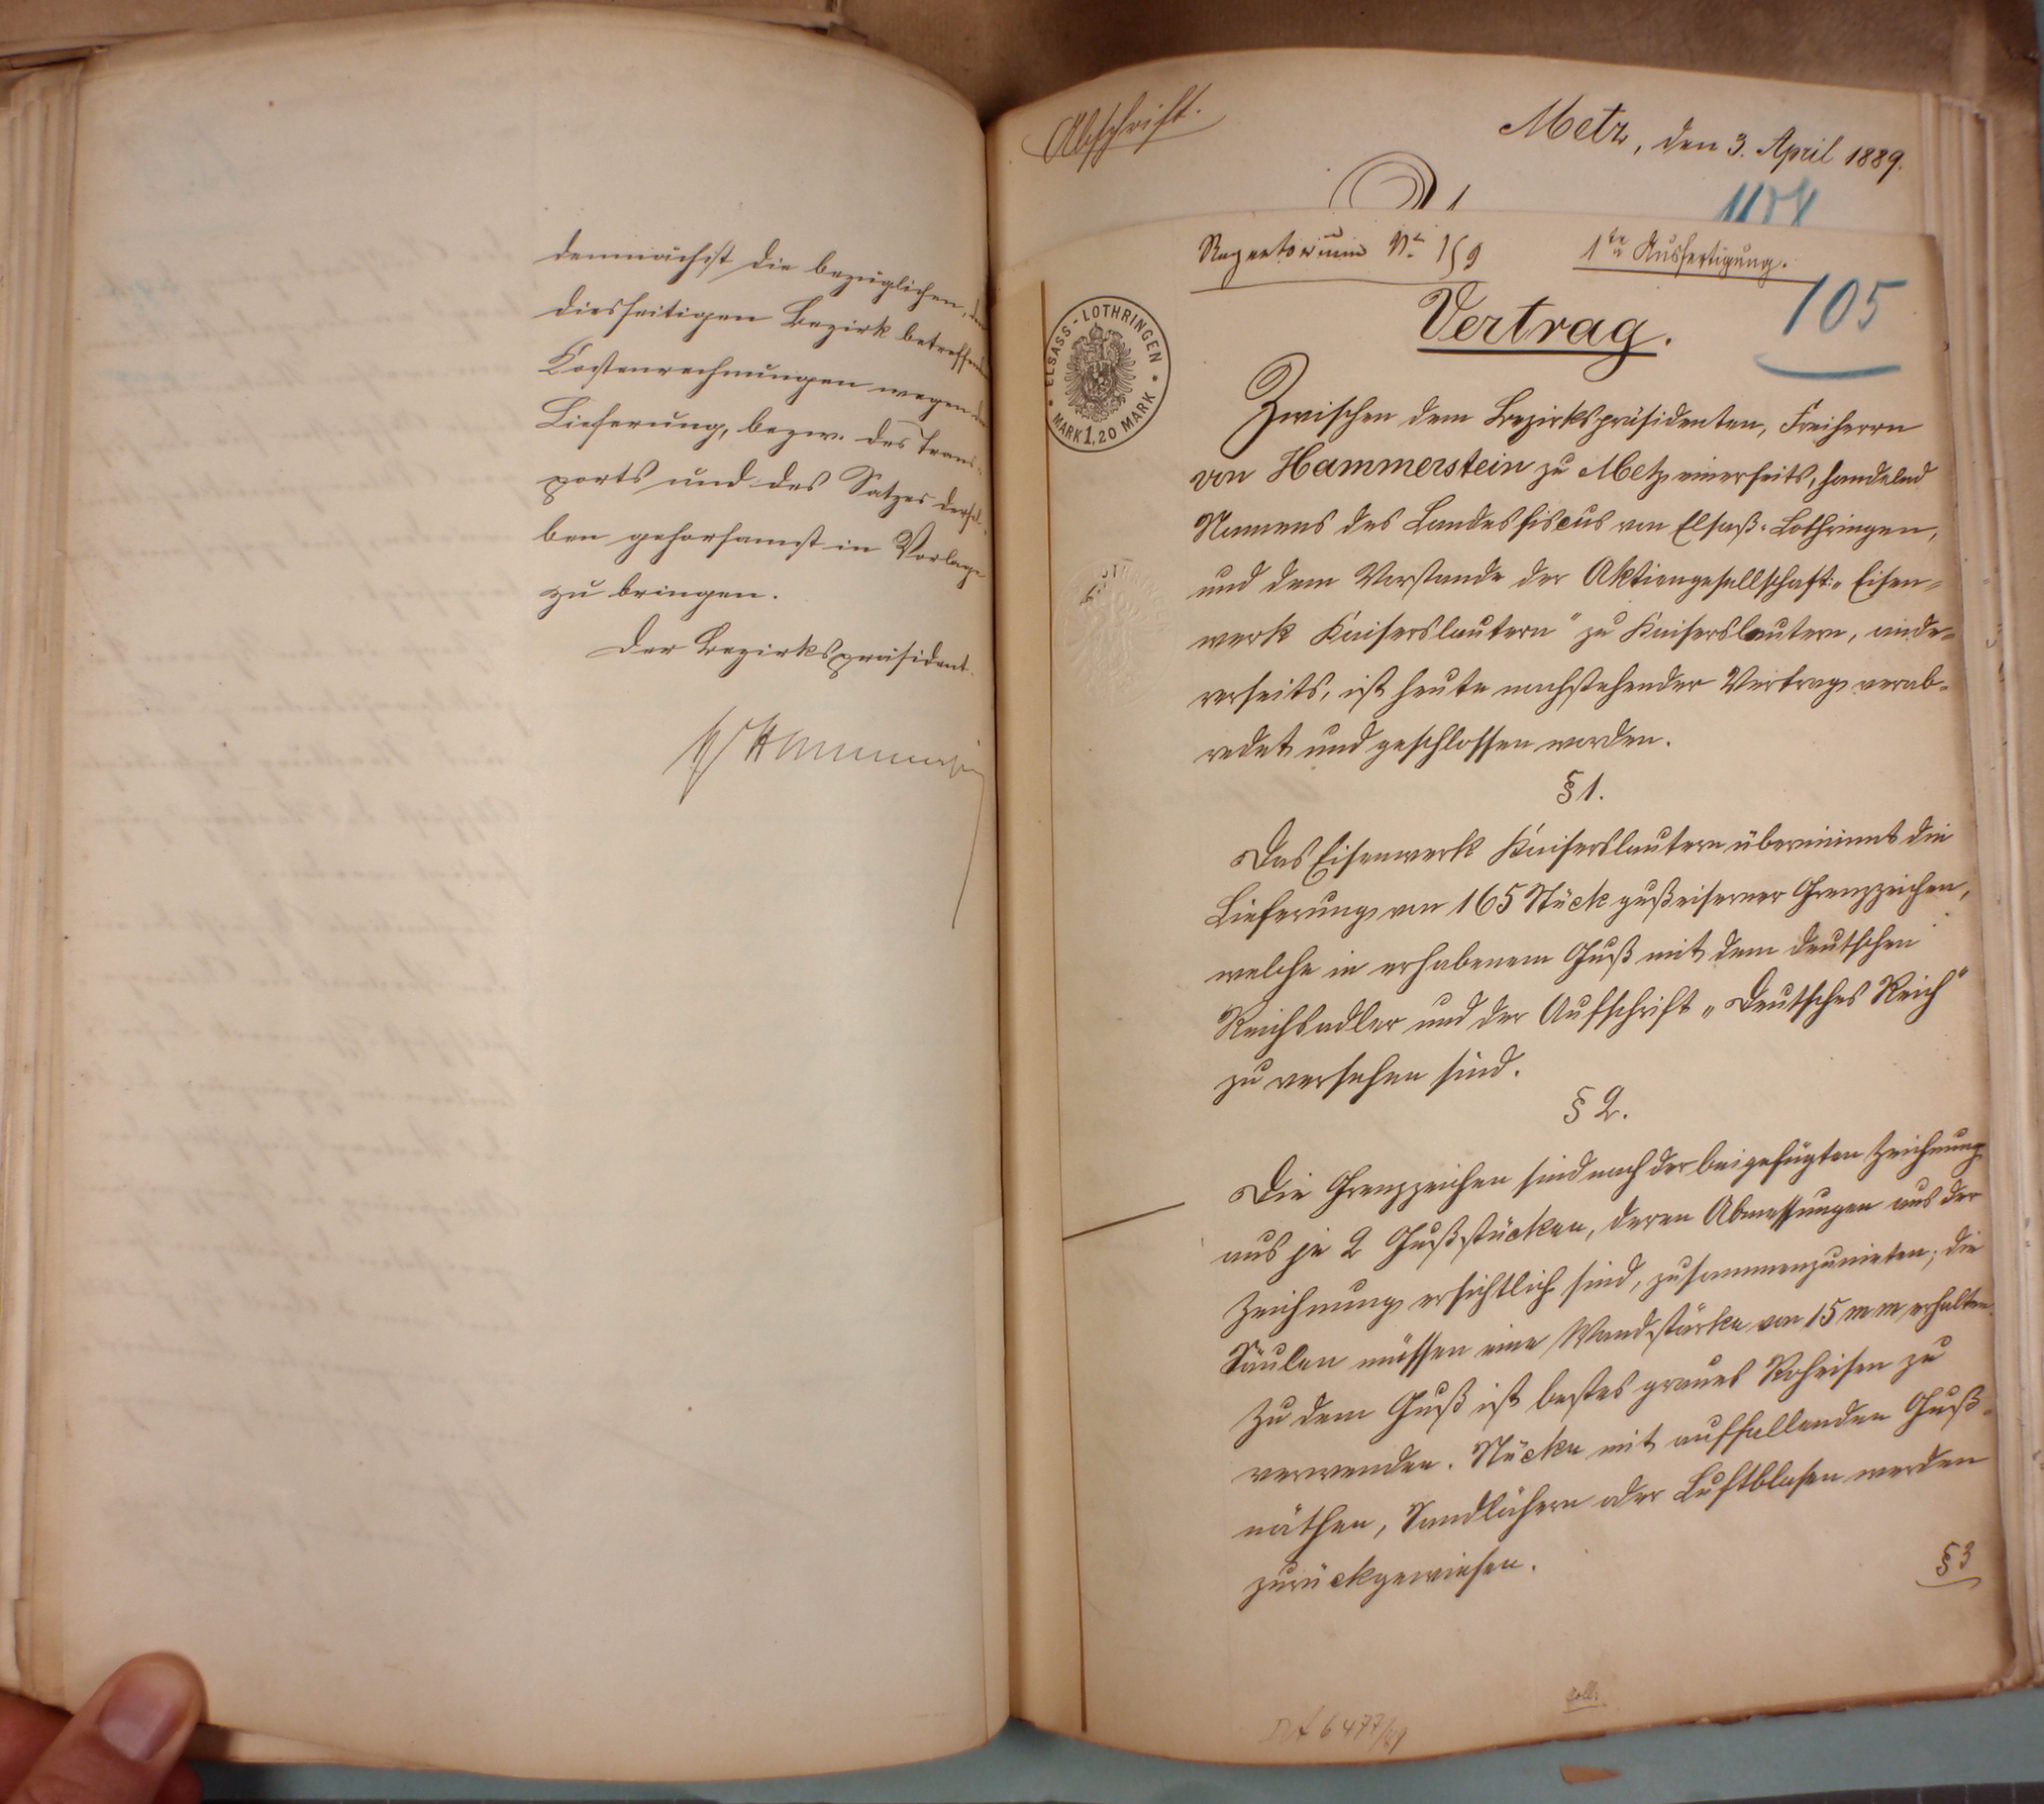 demnächst die bezüglichen, den
diesseitigen Bezirk betreffenden
Kostenrechnungen wegen der
Lieferung, bezw. des Trans-
ports und des Satzes dersel-
ben gehorsamst in Vorlage
zu bringen.
Der Bezirkspräsident.
Hammerstein
Abschrift.
Metz, den 3. April 1889.
Repertorium No. 159
1te Ausfertigung.
105
Vertrag.
ELSASS-LOTHRINGEN
MARK 1,20 MARK
Zwischen dem Bezirkspräsidenten, Freiherrn
von Hammerstein zu Metz einerseits, handelnd
Namens des Landesfiscus von Elsaß-Lothringen,
und dem Vorstande der Aktiengesellschaft: „Eisen-
werk Kaiserslautern" zu Kaiserslautern, ande-
rerseits, ist heute nachstehender Vertrag verab-
redet und geschlossen worden.
§ 1.
Das Eisenwerk Kaiserslautern übernimmt die
Lieferung von 165 Stück gußeiserner Grenzzeichen,
welche in erhabenem Guß mit dem deutschen
Reichsadler und der Aufschrift „Deutsches Reich"
zu versehen sind.
§ 2.
Die Grenzzeichen sind nach der beigefügten Zeichnung
aus je 2 Gußstücken, deren Abmessungen aus der
Zeichnung ersichtlich sind, zusammenzunieten; die
Säulen müssen eine Wandstärke von 15 mm erhalten.
Zu dem Guß ist bestes graues Roheisen zu
verwenden. Stücke mit auffallenden Guß-
näthen, Sandlöchern oder Luftblasen werden
zurückgewiesen.
§ 3
6477/89